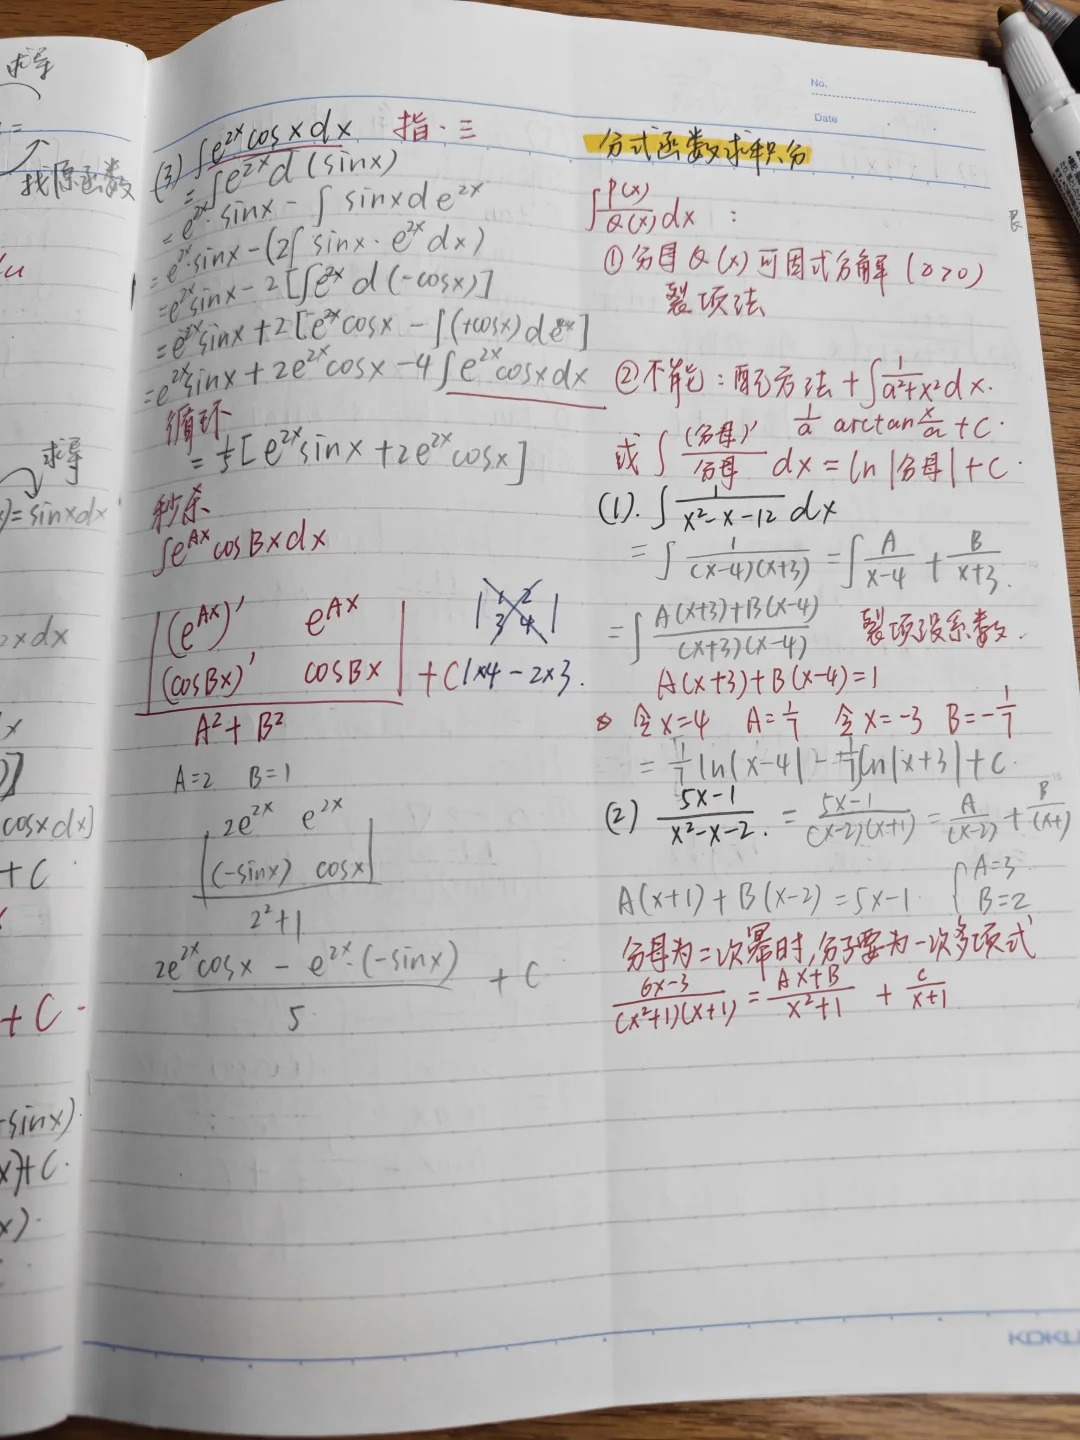 求导
=
找原函数
求导
)=sinxdx
2xdx
x
cosxdx]
+C
+C
-sinx)
x)+C.
x).
(3) ∫e^{2x}cosxdx 指.三
=∫e^{2x}d(sinx)
=e^{2x}·sinx-∫sinxde^{2x}
=e^{2x}·sinx-(2∫sinx·e^{2x}dx)
=e^{2x}sinx-2[∫e^{2x}d(-cosx)]
=e^{2x}sinx+2[e^{2x}cosx-∫(+cosx)de^{2x}]
=e^{2x}sinx+2e^{2x}cosx-4∫e^{2x}cosxdx
循环
=1/5[e^{2x}sinx+2e^{2x}cosx]
秒杀
∫e^{Ax}cosBxdx
|(e^{Ax})' e^{Ax}|
|(cosBx)' cosBx| +C
A²+B²
|1 2|
|3 4|
1×4-2×3.
A=2 B=1
|2e^{2x} e^{2x}|
|(-sinx) cosx|
2²+1
2e^{2x}cosx-e^{2x}·(-sinx) +C
5
No.
Date
分式函数求积分
∫P(x)/Q(x)dx:
①分母Q(x)可因式分解(△>0)
裂项法
②不能:配方法+∫1/(a²+x²)dx.
1/a arctan x/a+C.
或∫(分母)'/分母 dx=ln|分母|+C.
(1).∫1/(x²-x-12)dx
=∫1/((x-4)(x+3))=∫A/(x-4)+B/(x+3).
=∫(A(x+3)+B(x-4))/((x+3)(x-4)) 裂项设系数.
A(x+3)+B(x-4)=1
令x=4 A=1/7 令x=-3 B=-1/7
=1/7ln|x-4|-1/7ln|x+3|+C.
(2) (5x-1)/(x²-x-2).=(5x-1)/((x-2)(x+1))=A/(x-2)+B/(x+1)
A(x+1)+B(x-2)=5x-1. {A=3
B=2
分母为二次幂时,分子要为一次多项式
(6x-3)/((x²+1)(x+1))=(Ax+B)/(x²+1)+C/(x+1)